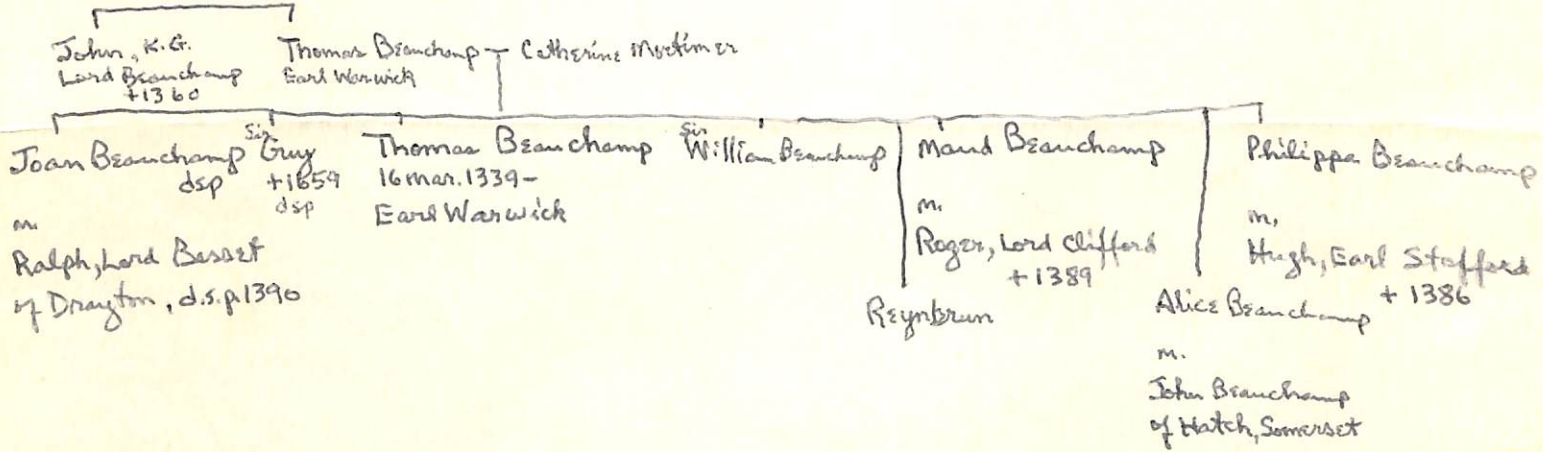 John, K.G.
Lord Beauchamp
+1360
Thomas Beauchamp
Earl Warwick
Catherine Mortimer
Joan Beauchamp
dsp
m.
Ralph, Lord Basset
of Drayton, d.s.p. 1390
Sir
Guy
+1359
dsp
Thomas Beauchamp
16 Mar. 1339-
Earl Warwick
Sir
William Beauchamp
Reynbrun
Maud Beauchamp
m.
Roger, Lord Clifford
+ 1389
Alice Beauchamp
m.
John Beauchamp
of Hatch, Somerset
Philippa Beauchamp
m,
Hugh, Earl Stafford
+ 1386